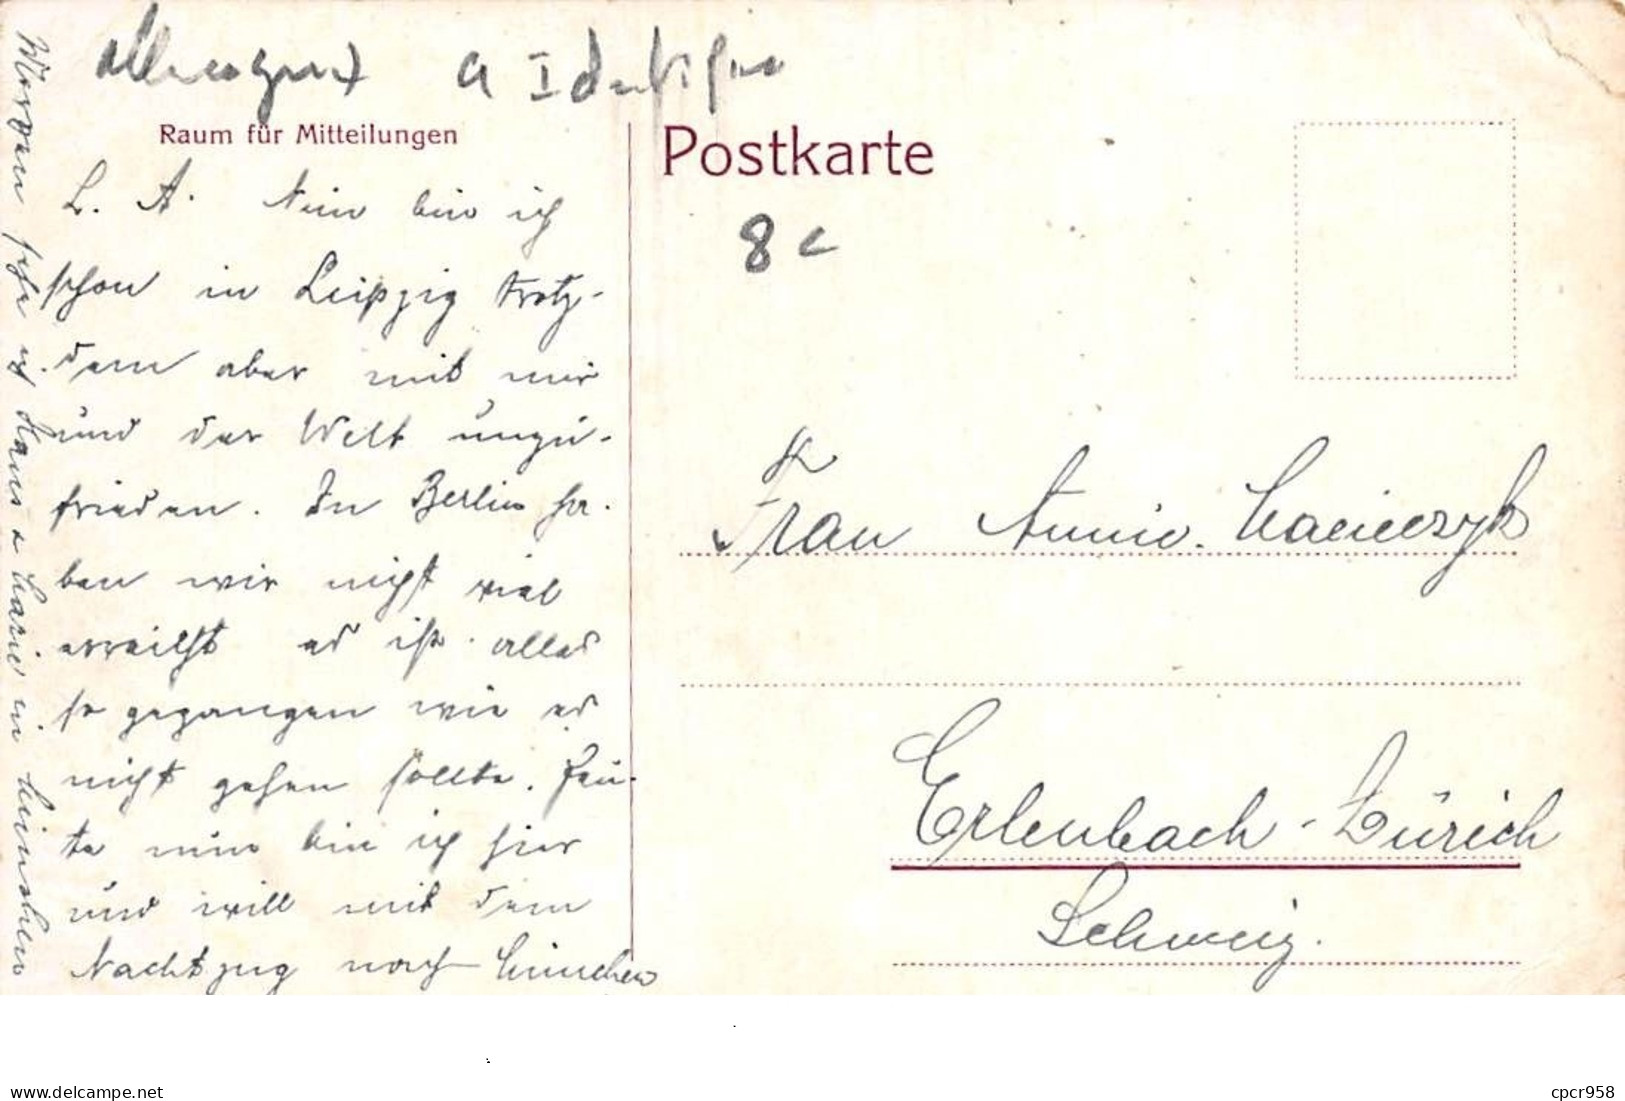 Allemagne a Identifier
Raum für Mitteilungen
Postkarte
8 c
L. A. Nun bin ich
schon in Leipzig trotz-
dem aber mit mir
und der Welt unzu-
frieden. In Berlin ha-
ben wir nicht viel
erreicht es ist alles
so gegangen wie es
nicht gehen sollte. Heu-
te nun bin ich hier
und will mit dem
Nachtzug nach München
Morgen sehe ich Hans & in München
Frau Annie
Erlenbach-Zürich
Schweiz.
delcampe.net
cpcr958